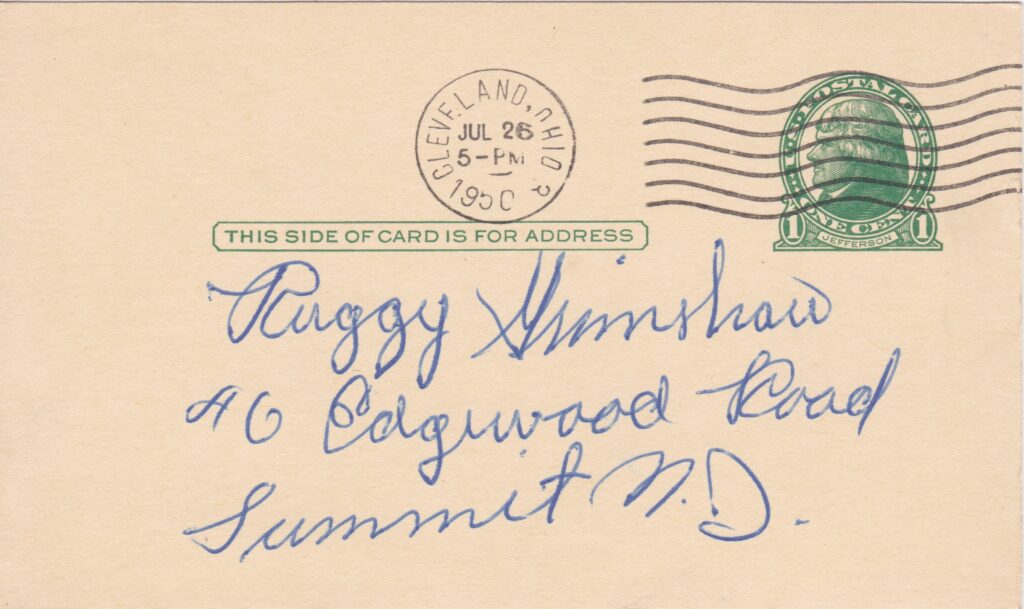 CLEVELAND, OHIO
JUL 26
5-PM
1950
U.S. POSTAL CARD
ONE CENT
1 JEFFERSON 1
THIS SIDE OF CARD IS FOR ADDRESS
Ruggy Grimshaw
46 Edgewood Road
Summit N.J.